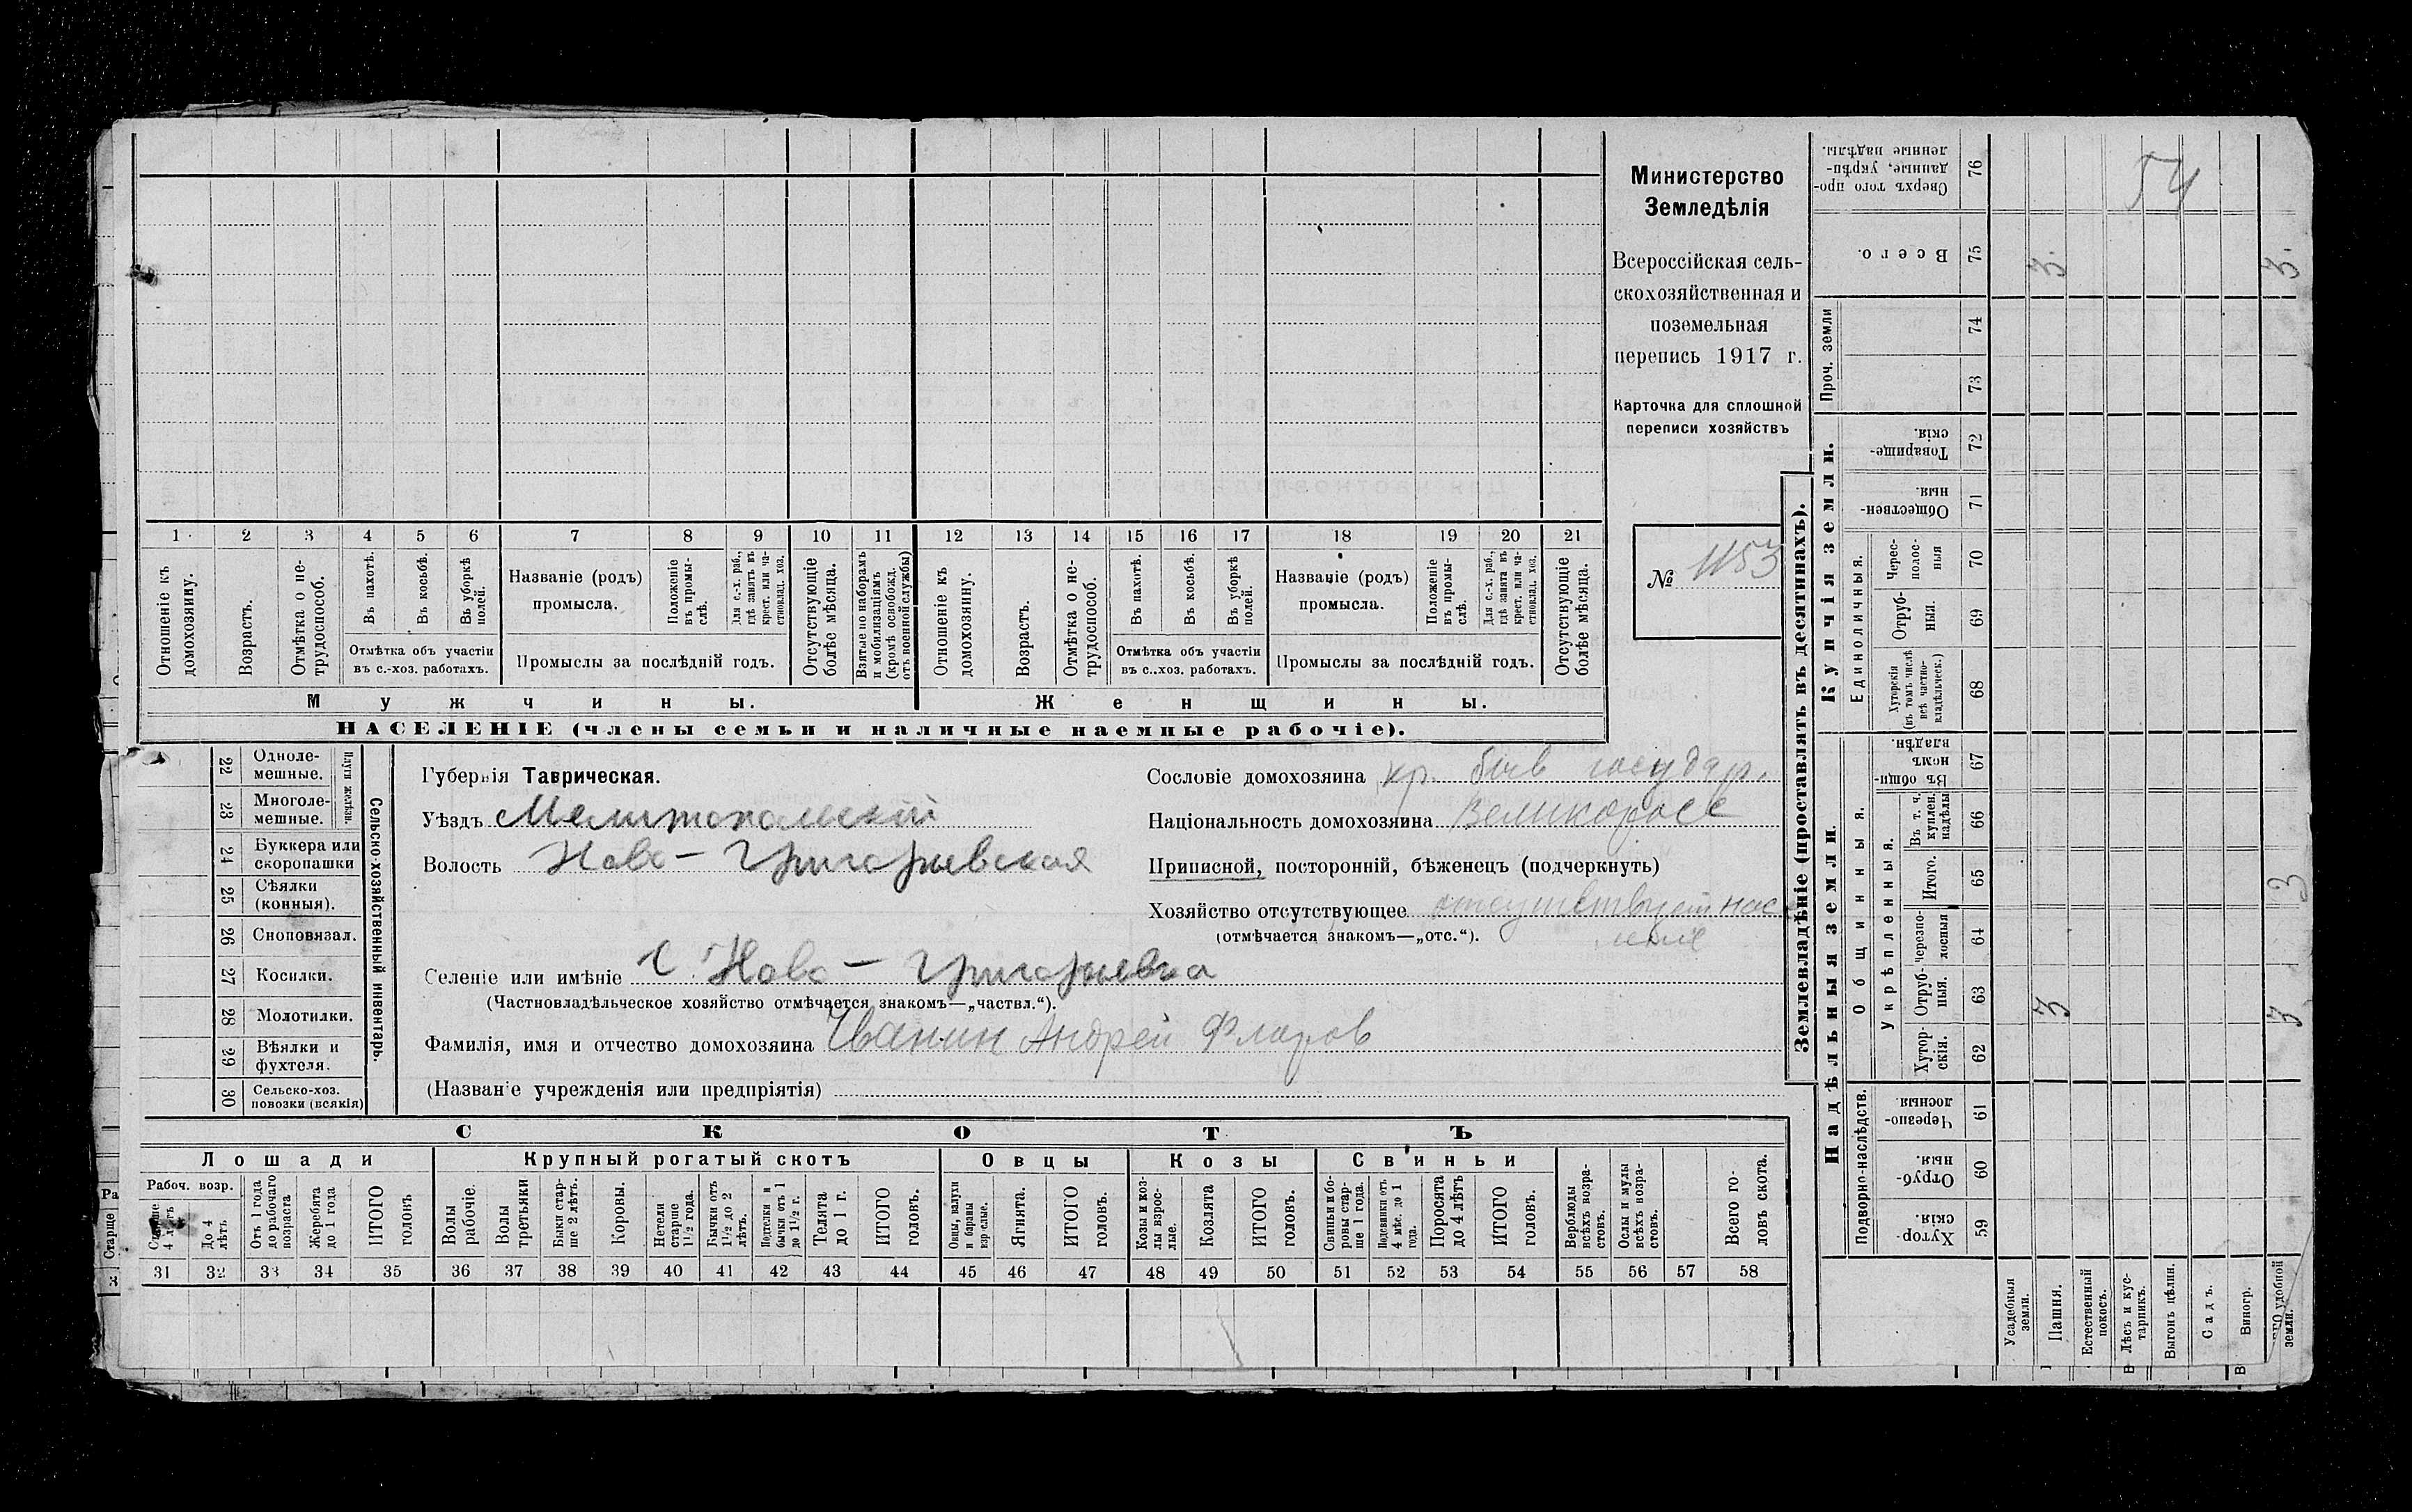 Министерство
Земледѣлія
Всероссійская сель-
скохозяйственная и
поземельная
перепись 1917 г.
Карточка для сплошной
переписи хозяйствъ
№ 1153
1 2 3 4 5 6 7 8 9 10 11 12 13 14 15 16 17 18 19 20 21
Отношеніе къ домохозяину.
Возрастъ.
Отмѣтка о не-трудоспособ.
Въ пахотѣ.
Въ косьбѣ.
Въ уборкѣ полей.
Названіе (родъ) промысла.
Положеніе въ промы-слѣ.
Для с.-х. раб., гдѣ занятъ въ крест. или ча-стновлад. хоз.
Отсутствующіе болѣе мѣсяца.
Взятые по наборамъ и мобилизаціямъ (кромѣ освобожд. отъ военной службы)
Отношеніе къ домохозяину.
Возрастъ.
Отмѣтка о не-трудоспособ.
Въ пахотѣ.
Въ косьбѣ.
Въ уборкѣ полей.
Названіе (родъ) промысла.
Положеніе въ промы-слѣ.
Для с.-х. раб., гдѣ занята въ крест. или ча-стновлад. хоз.
Отсутствующіе болѣе мѣсяца.
Отмѣтка объ участіи въ с.-хоз. работахъ.
Промыслы за послѣдній годъ.
Отмѣтка объ участіи въ с..хоз. работахъ.
Промыслы за послѣдній годъ.
Мужчины.
Женщины.
НАСЕЛЕНІЕ (члены семьи и наличные наемные рабочіе).
22 Одноле-мешные.
23 Многоле-мешные.
Плуги желѣзн.
24 Буккера или скоропашки
25 Сѣялки (конныя).
26 Сноповязал.
27 Косилки.
28 Молотилки.
29 Вѣялки и фухтеля.
30 Сельско-хоз. повозки (всякія)
Сельско-хозяйственный инвентарь.
Губернія Таврическая.
Уѣздъ Мелитопольскій
Волость Ново-Григорьевская
Селеніе или имѣніе с. Ново-Григорьевка
(Частновладѣльческое хозяйство отмѣчается знакомъ—„частвл.“).
Фамилія, имя и отчество домохозяина Иванин Андрей Флоров
(Названіе учрежденія или предпріятія)
Сословіе домохозяина кр. быв государ.
Національность домохозяина великоросс
Приписной, посторонній, бѣженецъ (подчеркнуть)
Хозяйство отсутствующее отсутствует
(отмѣчается знакомъ—„отс.“).
СКОТЪ
Лошади
Крупный рогатый скотъ
Овцы
Козы
Свиньи
Рабоч. возр.
Старше 4 лѣтъ
До 4 лѣтъ
Отъ 1 года до рабочаго возраста
Жеребята до 1 года
ИТОГО головъ
Волы рабочіе.
Волы третьяки
Быки стар-ше 2 лѣтъ.
Коровы.
Нетели старше 1½ года.
Бычки отъ 1½ до 2 лѣтъ.
Подтелки и бычки отъ 1 до 1½ г.
Телята до 1 г.
ИТОГО головъ.
Овцы, валухи и бараны взрослые.
Ягнята.
ИТОГО головъ.
Козы и коз-лы взрос-лые.
Козлята
ИТОГО головъ.
Свиньи и бо-ровы стар-ше 1 года.
Подсвинки отъ 4 мѣс. до 1 года.
Поросята до 4 лѣтъ
ИТОГО головъ.
Верблюды всѣхъ возра-стовъ.
Ослы и мулы всѣхъ возра-стовъ.
Всего го-ловъ скота.
31 32 33 34 35 36 37 38 39 40 41 42 43 44 45 46 47 48 49 50 51 52 53 54 55 56 57 58
Землевладѣніе (проставлять въ десятинахъ).
Купчія земли.
Надѣльныя земли.
Сверхъ того про-данные, укрѣп-ленные надѣлы. 76
54
Всего. 75
3. 3.
Проч. земли 74 73
Товарище-скія. 72
Обществен-ныя. 71
Единоличныя.
Черес-полос-ныя 70
Отруб-ныя. 69
Хуторскія (въ томъ числѣ всѣ частно-владѣльческ.) 68
Общинныя.
Въ общи-номъ владѣн. 67
Укрѣпленныя.
Въ т. ч. куплен. надѣлы 66
Итого. 65
3
Черезпо-лосныя 64
Отруб-ныя. 63
3 3
Хутор-скія. 62
Подворно-наслѣдств.
Черезпо-лосныя. 61
Отруб-ныя. 60
Хутор-скія. 59
Усадебныя земли.
Пашня.
Естественный покосъ.
Лѣсъ и кус-тарникъ.
Выгонъ цѣлин.
Садъ.
Виногр.
удобной земли.